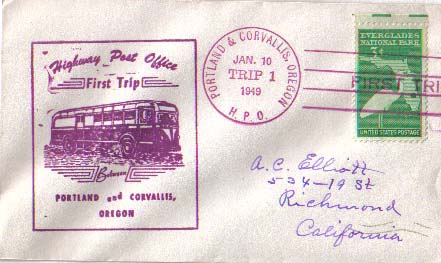 Highway Post Office
First Trip
Between
PORTLAND and CORVALLIS,
OREGON
PORTLAND & CORVALLIS, OREGON
JAN. 10
TRIP 1
1949
H. P. O.
EVERGLADES
NATIONAL PARK
3¢
UNITED STATES POSTAGE
FIRST TRI
A. C. Elliott
534-19 St
Richmond
California